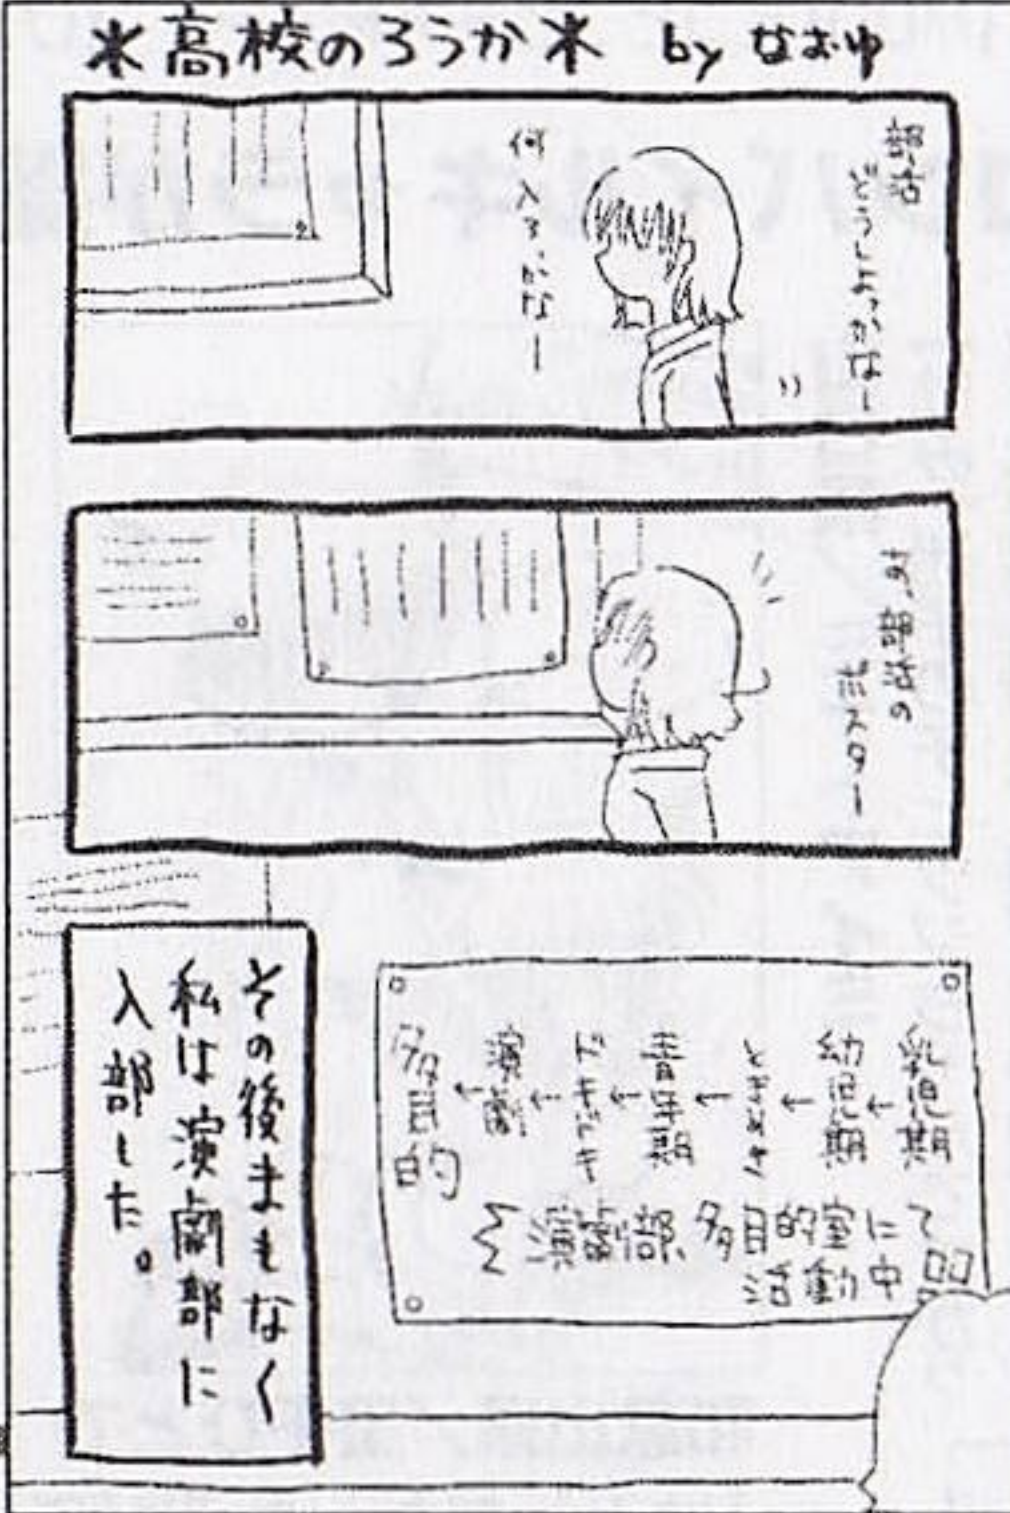 ＊高校のろうか＊ by なおゆ
部活
どうしよっかなー
何入ろっかなー
お、部活の
ポスター
乳児期
←
幼児期
←
←
青年期
←
←
演劇
←
多目的
演劇部、多目的室にて
活動中
その後まもなく
私は演劇部に
入部した。